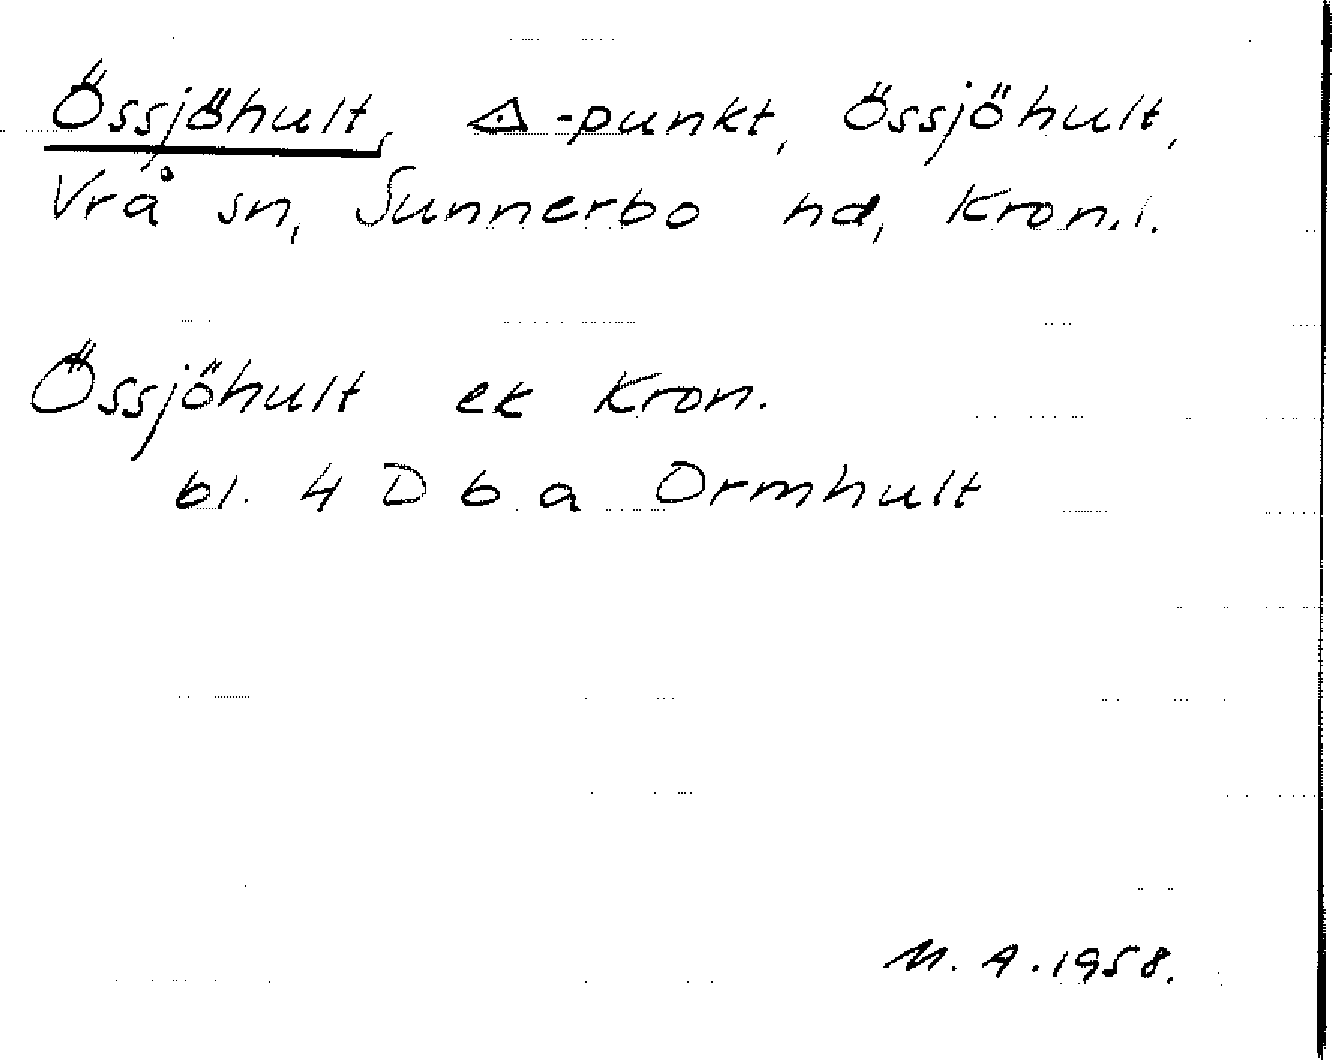 Össjöhult, △-punkt, Össjöhult,
Vrå sn, Sunnerbo hd, Kron.l.
Össjöhult ek Kron.
bl. 4 D b a Ormhult
M. A. 1958.